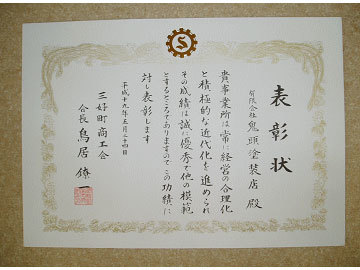 表彰状
有限会社 鬼頭塗装店 殿
貴事業所は常に経営の合理化
と積極的な近代化を進められ
その成績は誠に優秀で他の模範
とするところでありますのでこの功績に
対し表彰します
平成十九年五月二十四日
三好町商工会
会長 鳥居鐐一